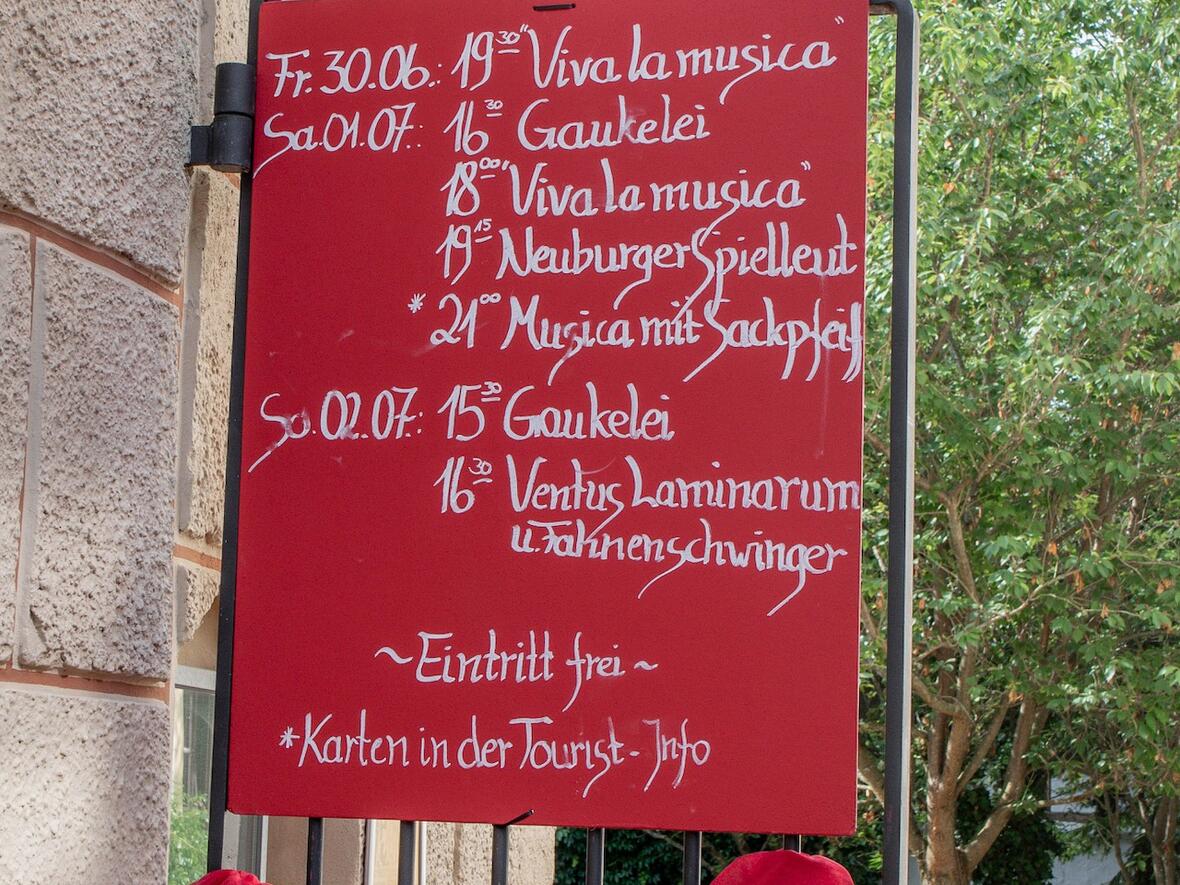 Fr. 30.06.: 19³⁰ "Viva la musica"
Sa. 01.07.: 16³⁰ Gaukelei
18⁰⁰ "Viva la musica"
19¹⁵ Neuburger Spielleut
* 21⁰⁰ Musica mit Sackpfeiff
So. 02.07.: 15³⁰ Gaukelei
16³⁰ Ventus Laminarum
u. Fahnenschwinger
~ Eintritt frei ~
* Karten in der Tourist-Info